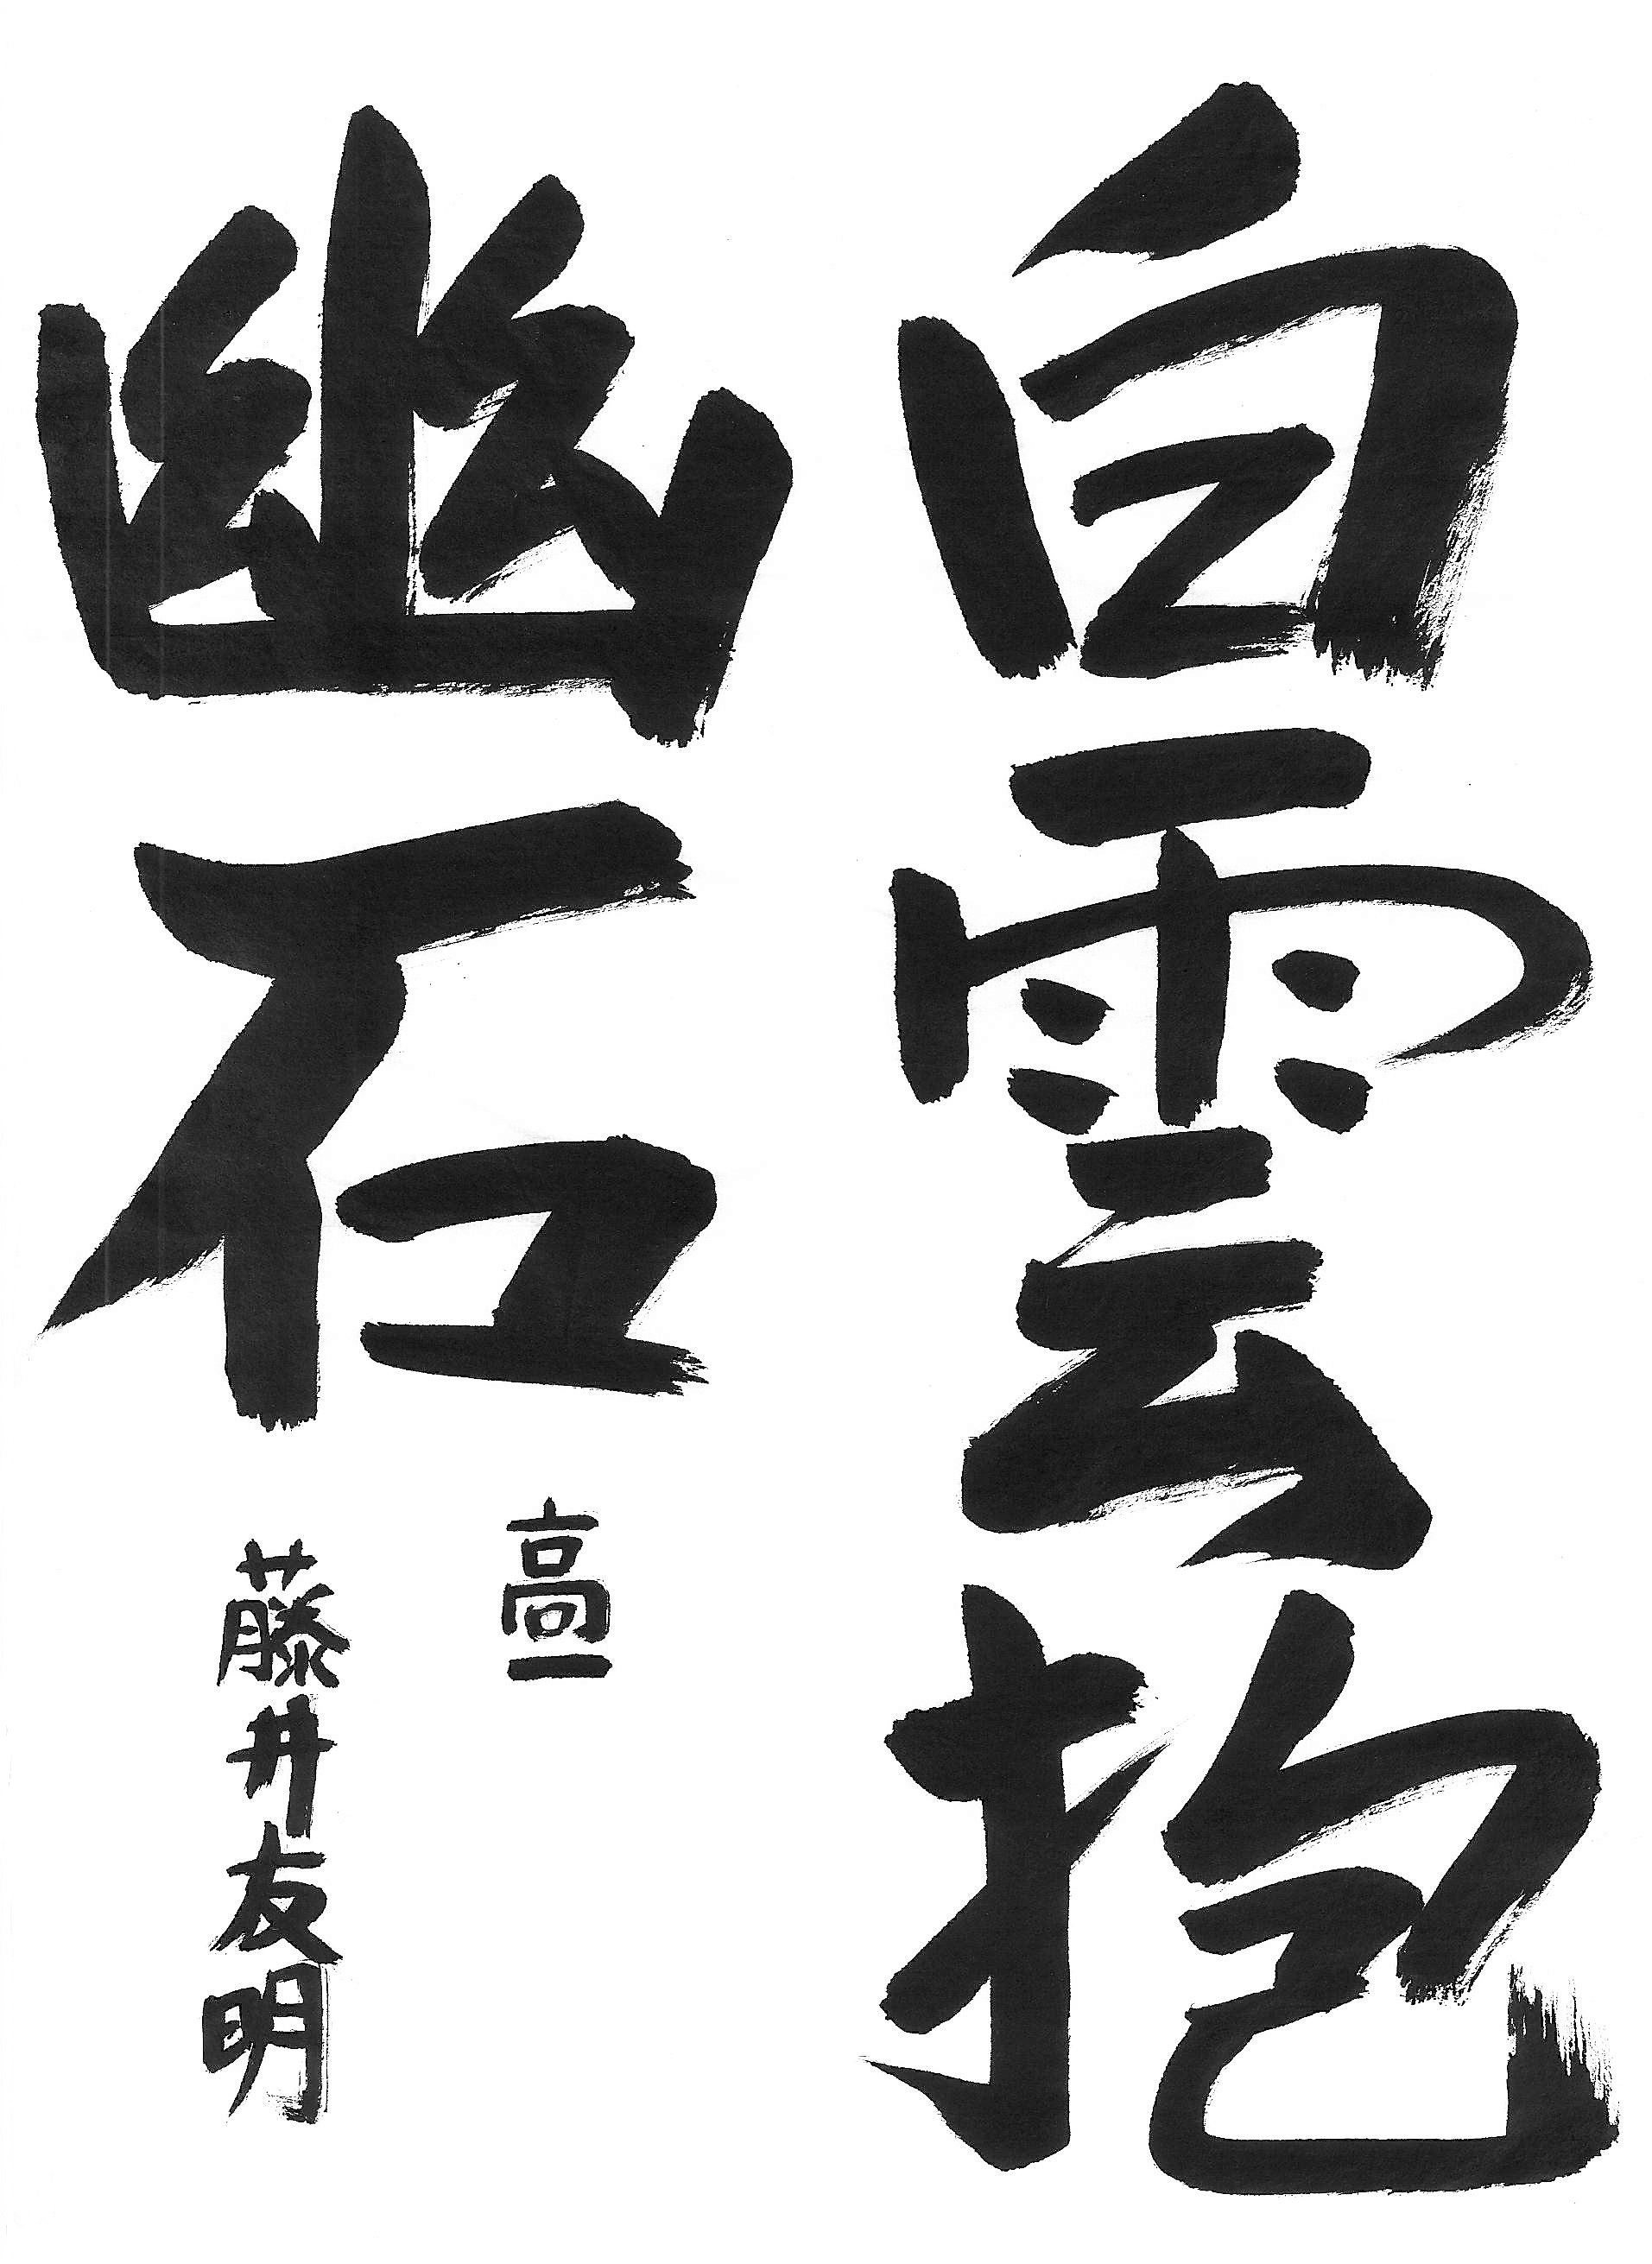 白雲抱
幽石
高一
藤井友明